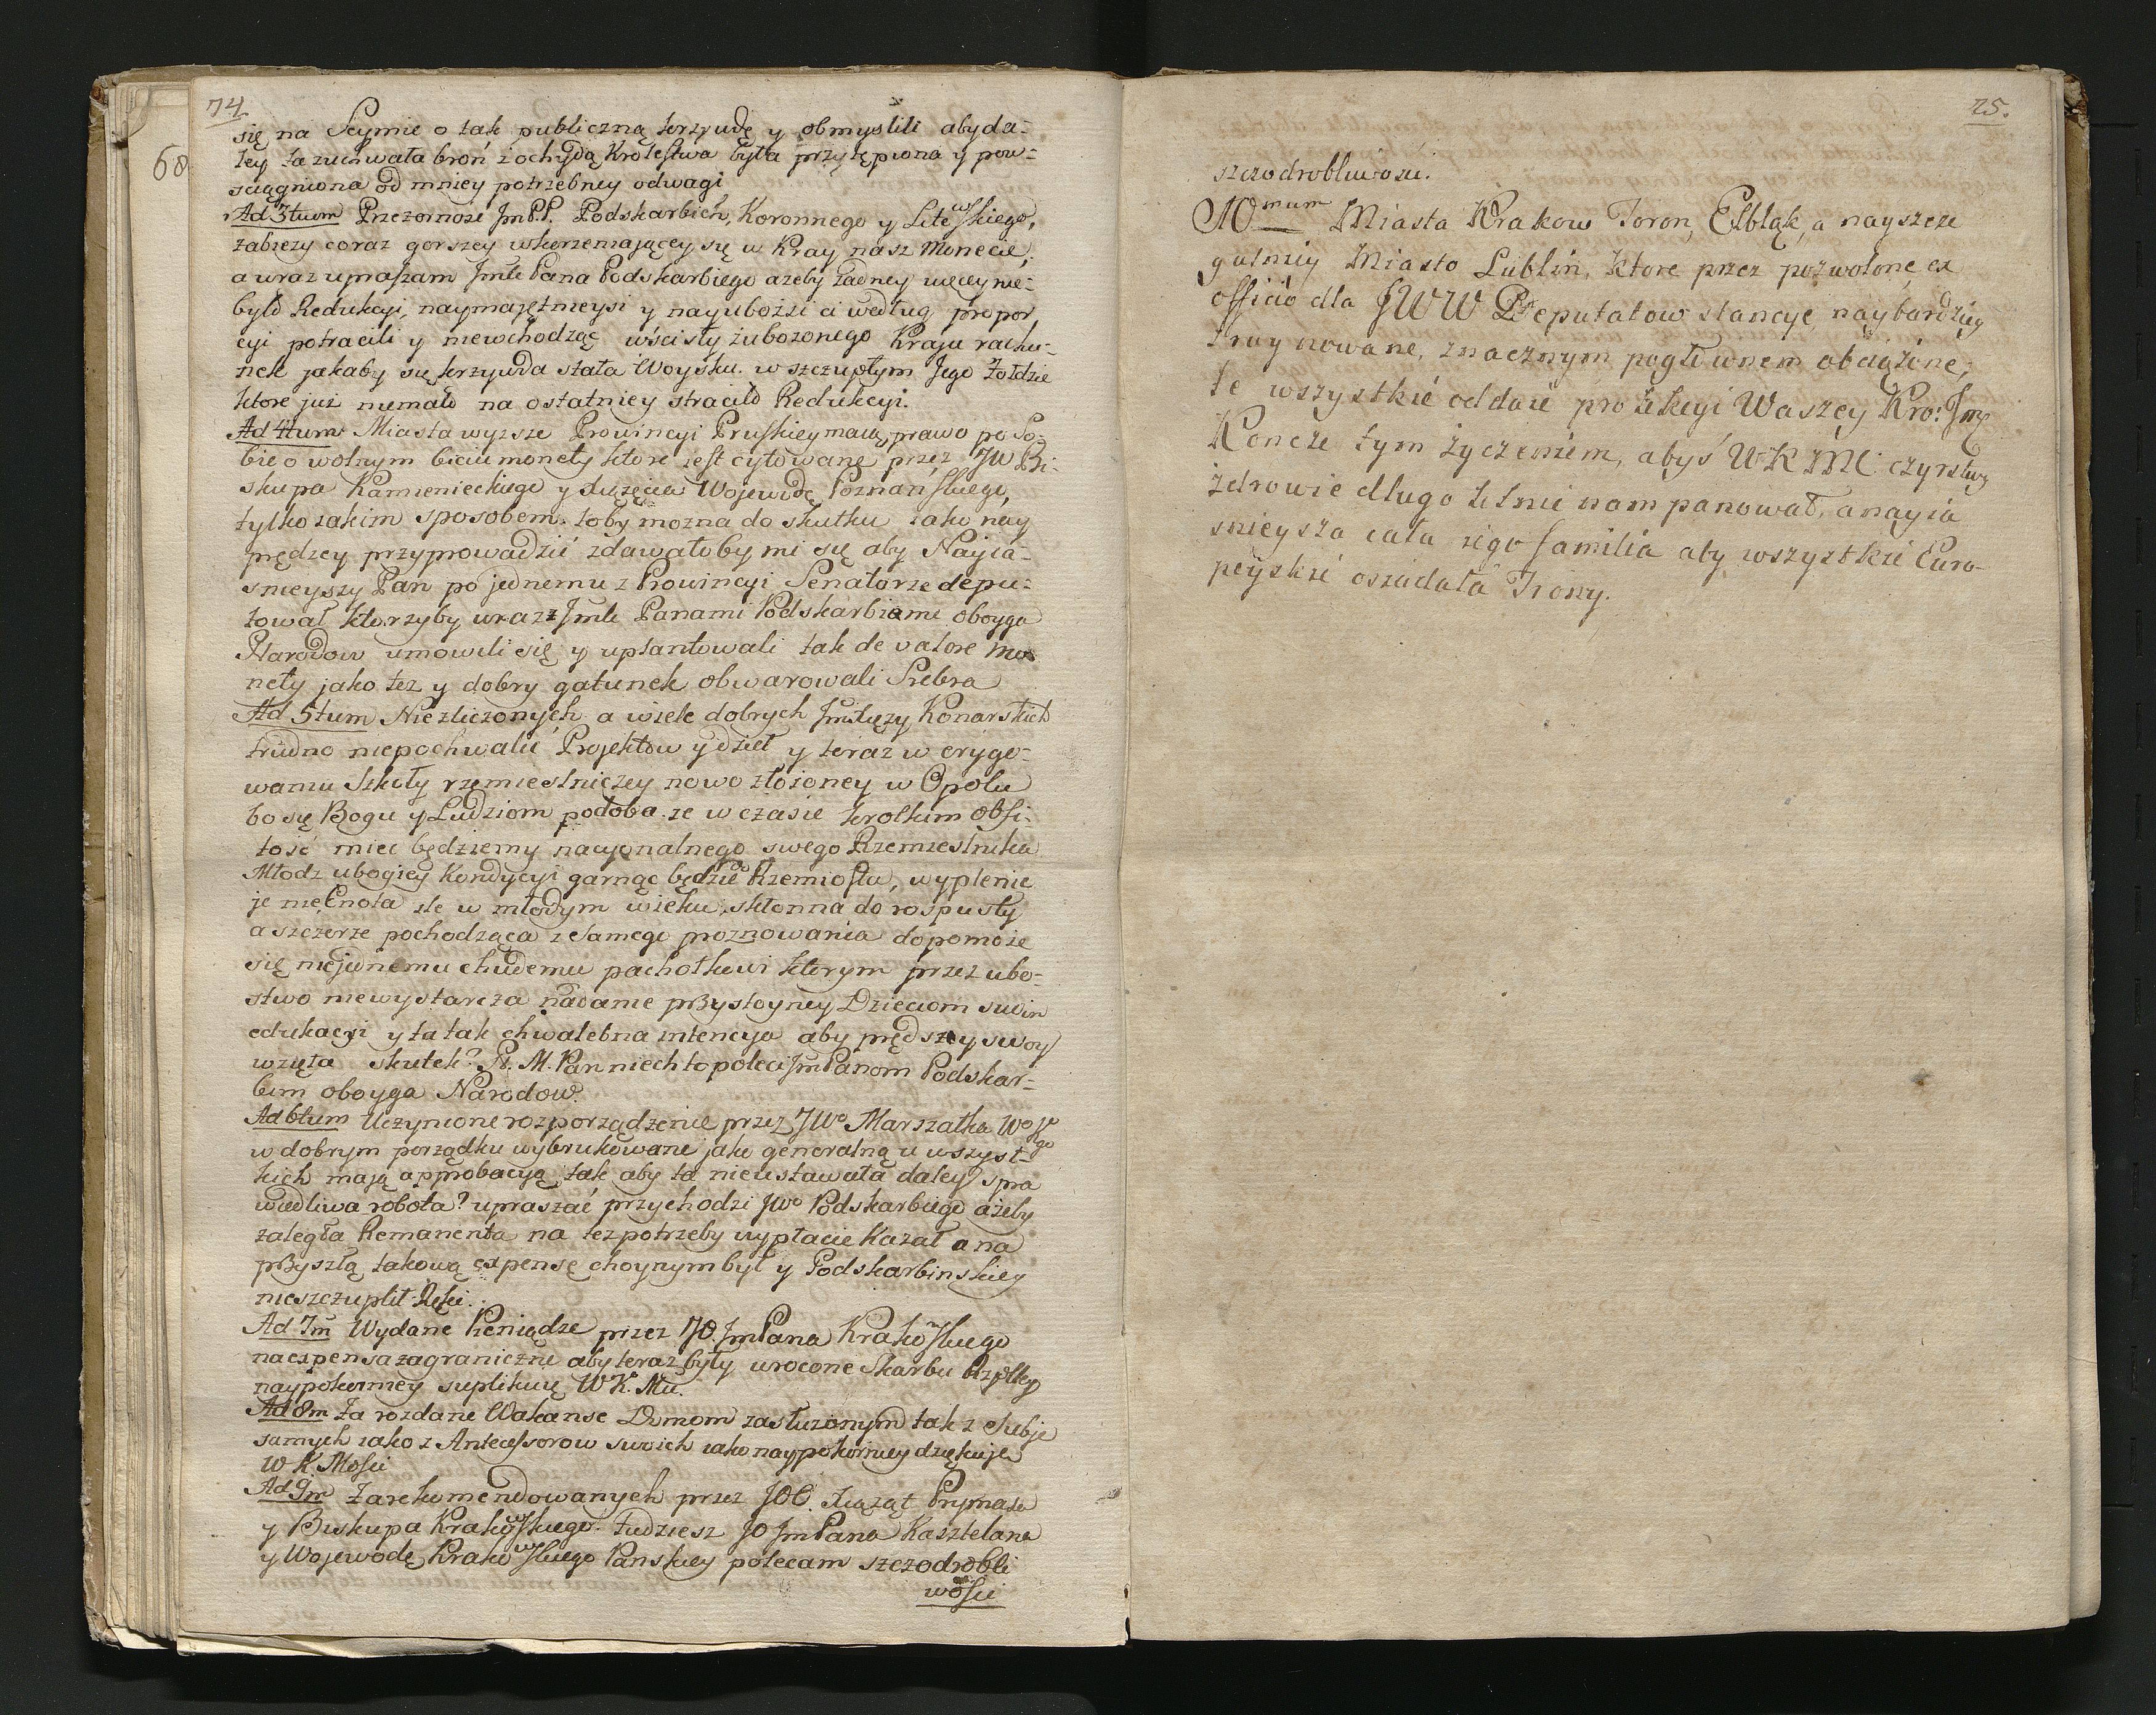 74.
68
się na Seymie o tak publiczną krzywdę y obmyslili aby da-
ley ta zuchwała broń z ochydą Krolestwa była przytępiona y pow-
sciągniona od mniey potrzebney odwagi
Ad 3tium Przezornose JmPP. Podskarbich, Koronnego y Litewskiego,
zabiezy coraz gorszey wkorzeniającey się w Kray nasz Monecie,
a wraz upraszam Jmłć Pana Podskarbiego azeby żadney więcey nie-
było Redukcyi, naymajętnieysi y nayubożsi ci według propor
cyi potracili y niewchodząc w ścisły zubozonego Kraju rachu-
nek jakaby się krzywda stała Woysku w szczupłym Jego Żołdzie
ktore już niemało na ostatniey straciło Redukcyi.
Ad 4tum Miasta wyzsze Prowincyi Pruskiey maią prawo po So-
bie o wolnym biciu monety ktore jest cytowane przez JW Bi-
skupa Kamienieckiego y Xiążęcia Wojewodę Poznanskiego,
tylko iakim sposobem toby mozna do skutku iako nay
prędzey przyprowadzić zdawałoby mi się aby Nayia-
snieyszy Pan po jednemu z Prowincyi Senatorze depu-
tował ktorzyby wraz z Jmłć Panami Podskarbiami oboyga
Narodow umowili się y uplantowali tak de valore Mo-
nety jako też y dobry gatunek obwarowali Srebra
Ad 5tum Niezliczonych a wiele dobrych JmXięży Konarskich
trudno niepochwalić Projektow y dzieł y teraz w erygo-
waniu Szkoły rzemieslniczey nowo złożoney w Opolu
bo się Bogu y Ludziom podoba ze w czasie krotkim obfi-
tość miec będziemy nacyonalnego swego Rzemieslnika
Młodz ubogiey Kondycyi garnąc będzie do Rzemiosła, wyplenie
je niecnota złe w młodym wieku, skłonna do rospusty
a szczerze pochodząca z samego proznowania dopomoże
się niejednemu chudemu pachołkowi ktorym przez ubo-
stwo niewystarcza nadanie przystoyney Dzieciom swoim
edukacyi y ta tak chwalebna intencya aby prędszey swoy
wzięła skutek? P. M. Pan niech to poleci JmPanom Podskar-
bim oboyga Narodow.
Ad 6tum Uczynione rozporządzenie przez JWo Marszałka Wo Kgo
w dobrym porządku wybrukowane jako generalną u wszyst-
kich mają approbacyą, tak aby ta nieustawała daley spra
wiedliwa robota? upraszać przychodzi JWo Podskarbiego ażeby
zaległa Remanenta na też potrzeby wypłacie Kazał a na
przyszłą takową expensę choynym był y Podskarbinskiey
nieszczuplił Ręki.
Ad 7m Wydane Pieniądze przez JO. JmPana Krakowskiego
na expensa zagraniczne aby teraz były wrocone Skarbu Rzpltey
naypokorniey suplikuię WK. Mci.
Ad 8m Za rozdane Wakanse Domom zasłużonym tak z siebje
samych iako z Antecessorow swoich iako naypokorniey dziękuje
W K. Mosci
Ad 9m Zarekomendowanych przez JOO. Xiążąt Prymasa
y Biskupa Krakowskiego tudziesz JO JmPana Kasztelana
y Wojewodę Krakowskiego Panskiey polecam szczodrobli
wosci
75.
szczodrobliwosci.
10mum Miasta Krakow Toron, Elbląk, a nayszcze
gulniey Miasto Lublin, ktore przez pozwolone ex
officio dla JWW Deputatow stancye naybardziey
zruynowane, znacznym pogłownem obciążone,
te wszystkie oddaie protekcyi Waszey Kro: Jmći
Koncze tym życzeniem, abyś WKMć czyrstwy
zdrowie długo letnie nam panował, a nayia
snieysza cała iego familia aby wszystkie Euro-
peyskie osiadała Trony.